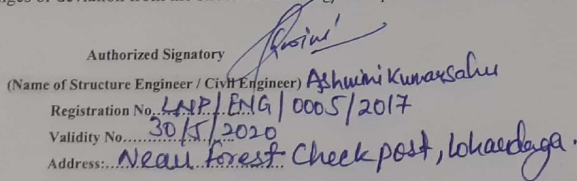 Authorized Signatory
(Name of Structure Engineer / Civil Engineer) Ashwini Kumar Sahu
Registration No. LNP/ENG/0005/2017
Validity No......30/5/2020
Address:..Near Forest Check post, Lohardaga.